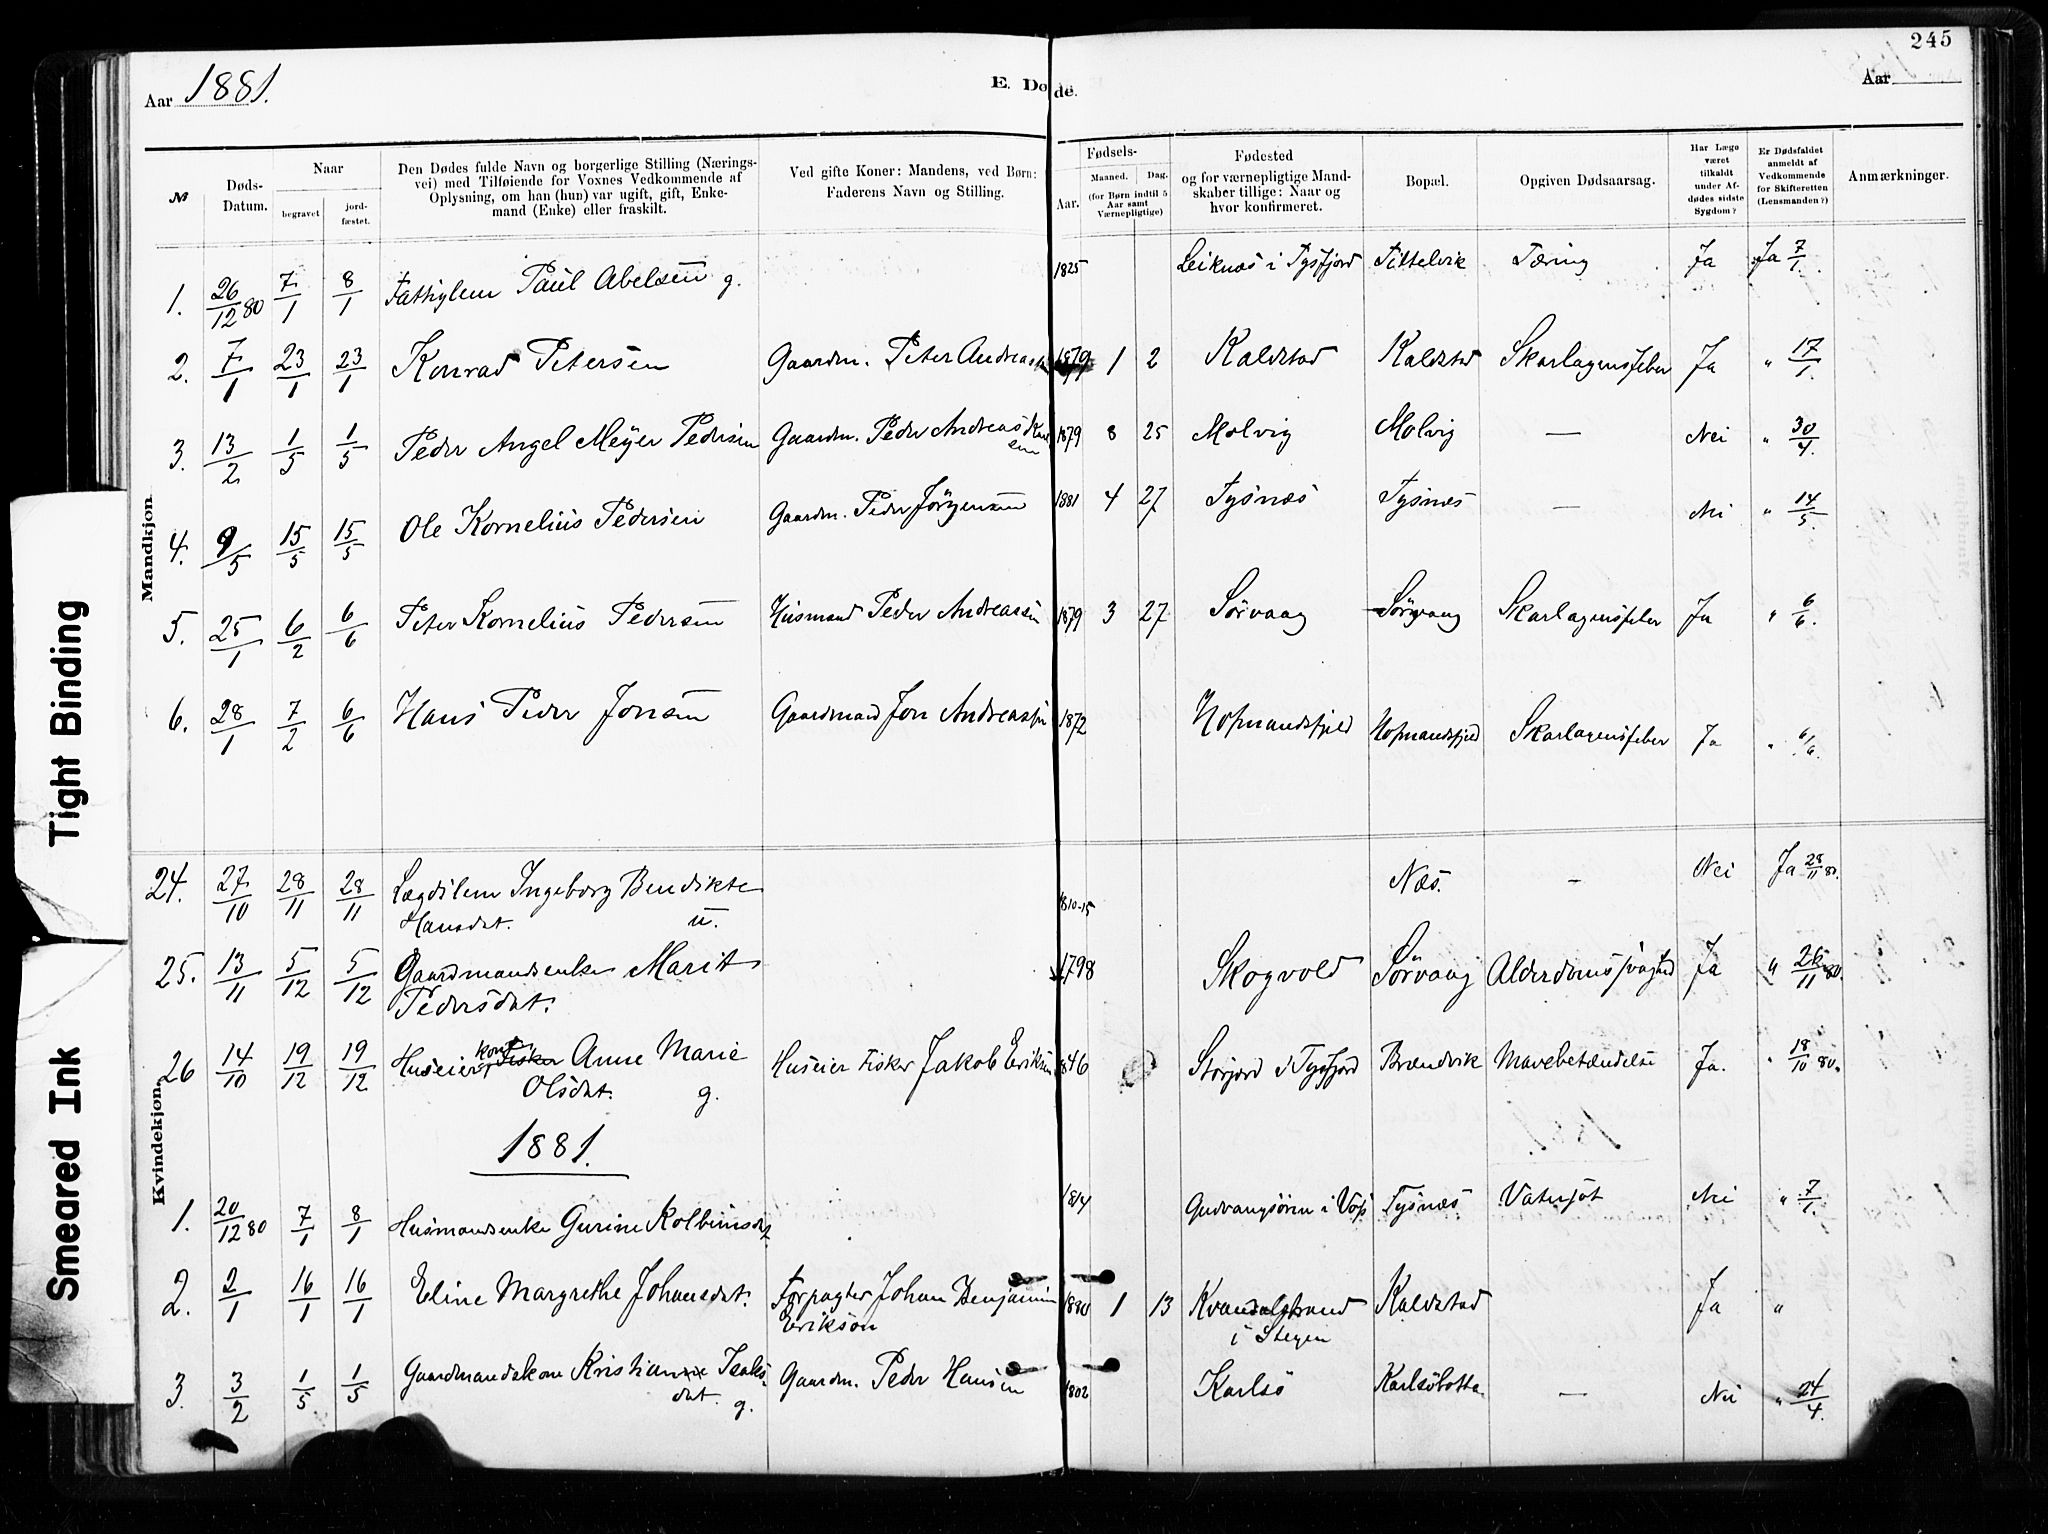 245
Aar 1881.
E. Døde.
Aar
№
Døds-Datum.
Naar
begravet
jord-fæstet.
Den Dødes fulde Navn og borgerlige Stilling (Nærings-
vei) med Tilføiende for Voxnes Vedkommende af
Oplysning, om han (hun) var ugift, gift, Enke-
mand (Enke) eller fraskilt.
Ved gifte Koner: Mandens, ved Børn:
Faderens Navn og Stilling.
Fødsels-
Aar.
Maaned.
Dag.
(for Børn indtil 5
Aar samt
Værnepligtige)
Fødested
og for værnepligtige Mand-
skaber tillige: Naar og
hvor konfirmeret.
Bopæl.
Opgiven Dødsaarsag.
Har Læge
været
tilkaldt
under Af-
dødes sidste
Sygdom?
Er Dødsfaldet
anmeldt af
Vedkommende
for Skifteretten
(Lensmanden?)
Anmærkninger.
Mandkjøn
1. 26/12 80 7/1 8/1 Fattiglem Paul Abelsen g. 1825 Leiknæs i Tysfjord Tittelvik Tæring Ja Ja 7/1.
2. 7/1 23/1 23/1 Konrad Petersen Gaardm. Peter Andreassen 1879 1 2 Kaldstad Kaldstad Skarlagensfeber Ja " 17/1.
3. 13/2 1/5 1/5 Peder Angel Meyer Pedersen Gaardm. Peder Andreas 1879 8 25 Molvig Molvig — Nei " 30/4.
4. 9/5 15/5 15/5 Ole Kornelius Pedersen Gaardm. Peder Jörgensen 1881 4 27 Tysnæs Tysnæs — Nei " 14/5.
5. 25/1 6/2 6/6 Peter Kornelius Pedersen Husmand Peder Andreassen 1879 3 27 Sörvaag Sörvaag Skarlagensfeber Ja " 6/6.
6. 28/1 7/2 6/6 Hans Peder Jonsen Gaardmand Jon Andreassen 1872 Hofmandsfjeld Hofmandsfjeld Skarlagensfeber Ja " 6/6.
Kvindekjøn.
24. 27/10 28/11 28/11 Lægdslem Ingeborg Bendikte 1810-15 Næs. — Nei Ja 28/11 80.
Hansdat. u.
25. 13/11 5/12 5/12 Gaardmandsenke Marit 1798 Skogvold Sörvaag Alderdomssvaghed Ja " 26/11 80.
Pedersdat.
26 14/10 19/12 19/12 Huseier Fisker kone Anne Marie Huseier Fisker Jakob Eriksen 1846 Storjord i Tysfjord Brændvik Mavebetændelse Ja. " 18/10 80.
Olsdat. g.
1881.
1. 20/12 80 7/1 8/1 Husmandsenke Gurine Kolbeinsdat 1814 i Vos Tysnæs Vatersot Nei " 7/1.
2. 2/1 16/1 16/1 Eline Margrethe Johansdat. Forpagter Johan Benjamin 1880 1 13 Kvandalstrand Kaldstad Ja "
Erikson i Stegen
3. 3/2 1/5 1/5 Gaardmandskone Kristianne Isaks- Gaardm. Peder Hansen 1802 Karlsö Karlsöbotten — Nei " 24/4.
dat. g.
Tight Binding
Smeared Ink